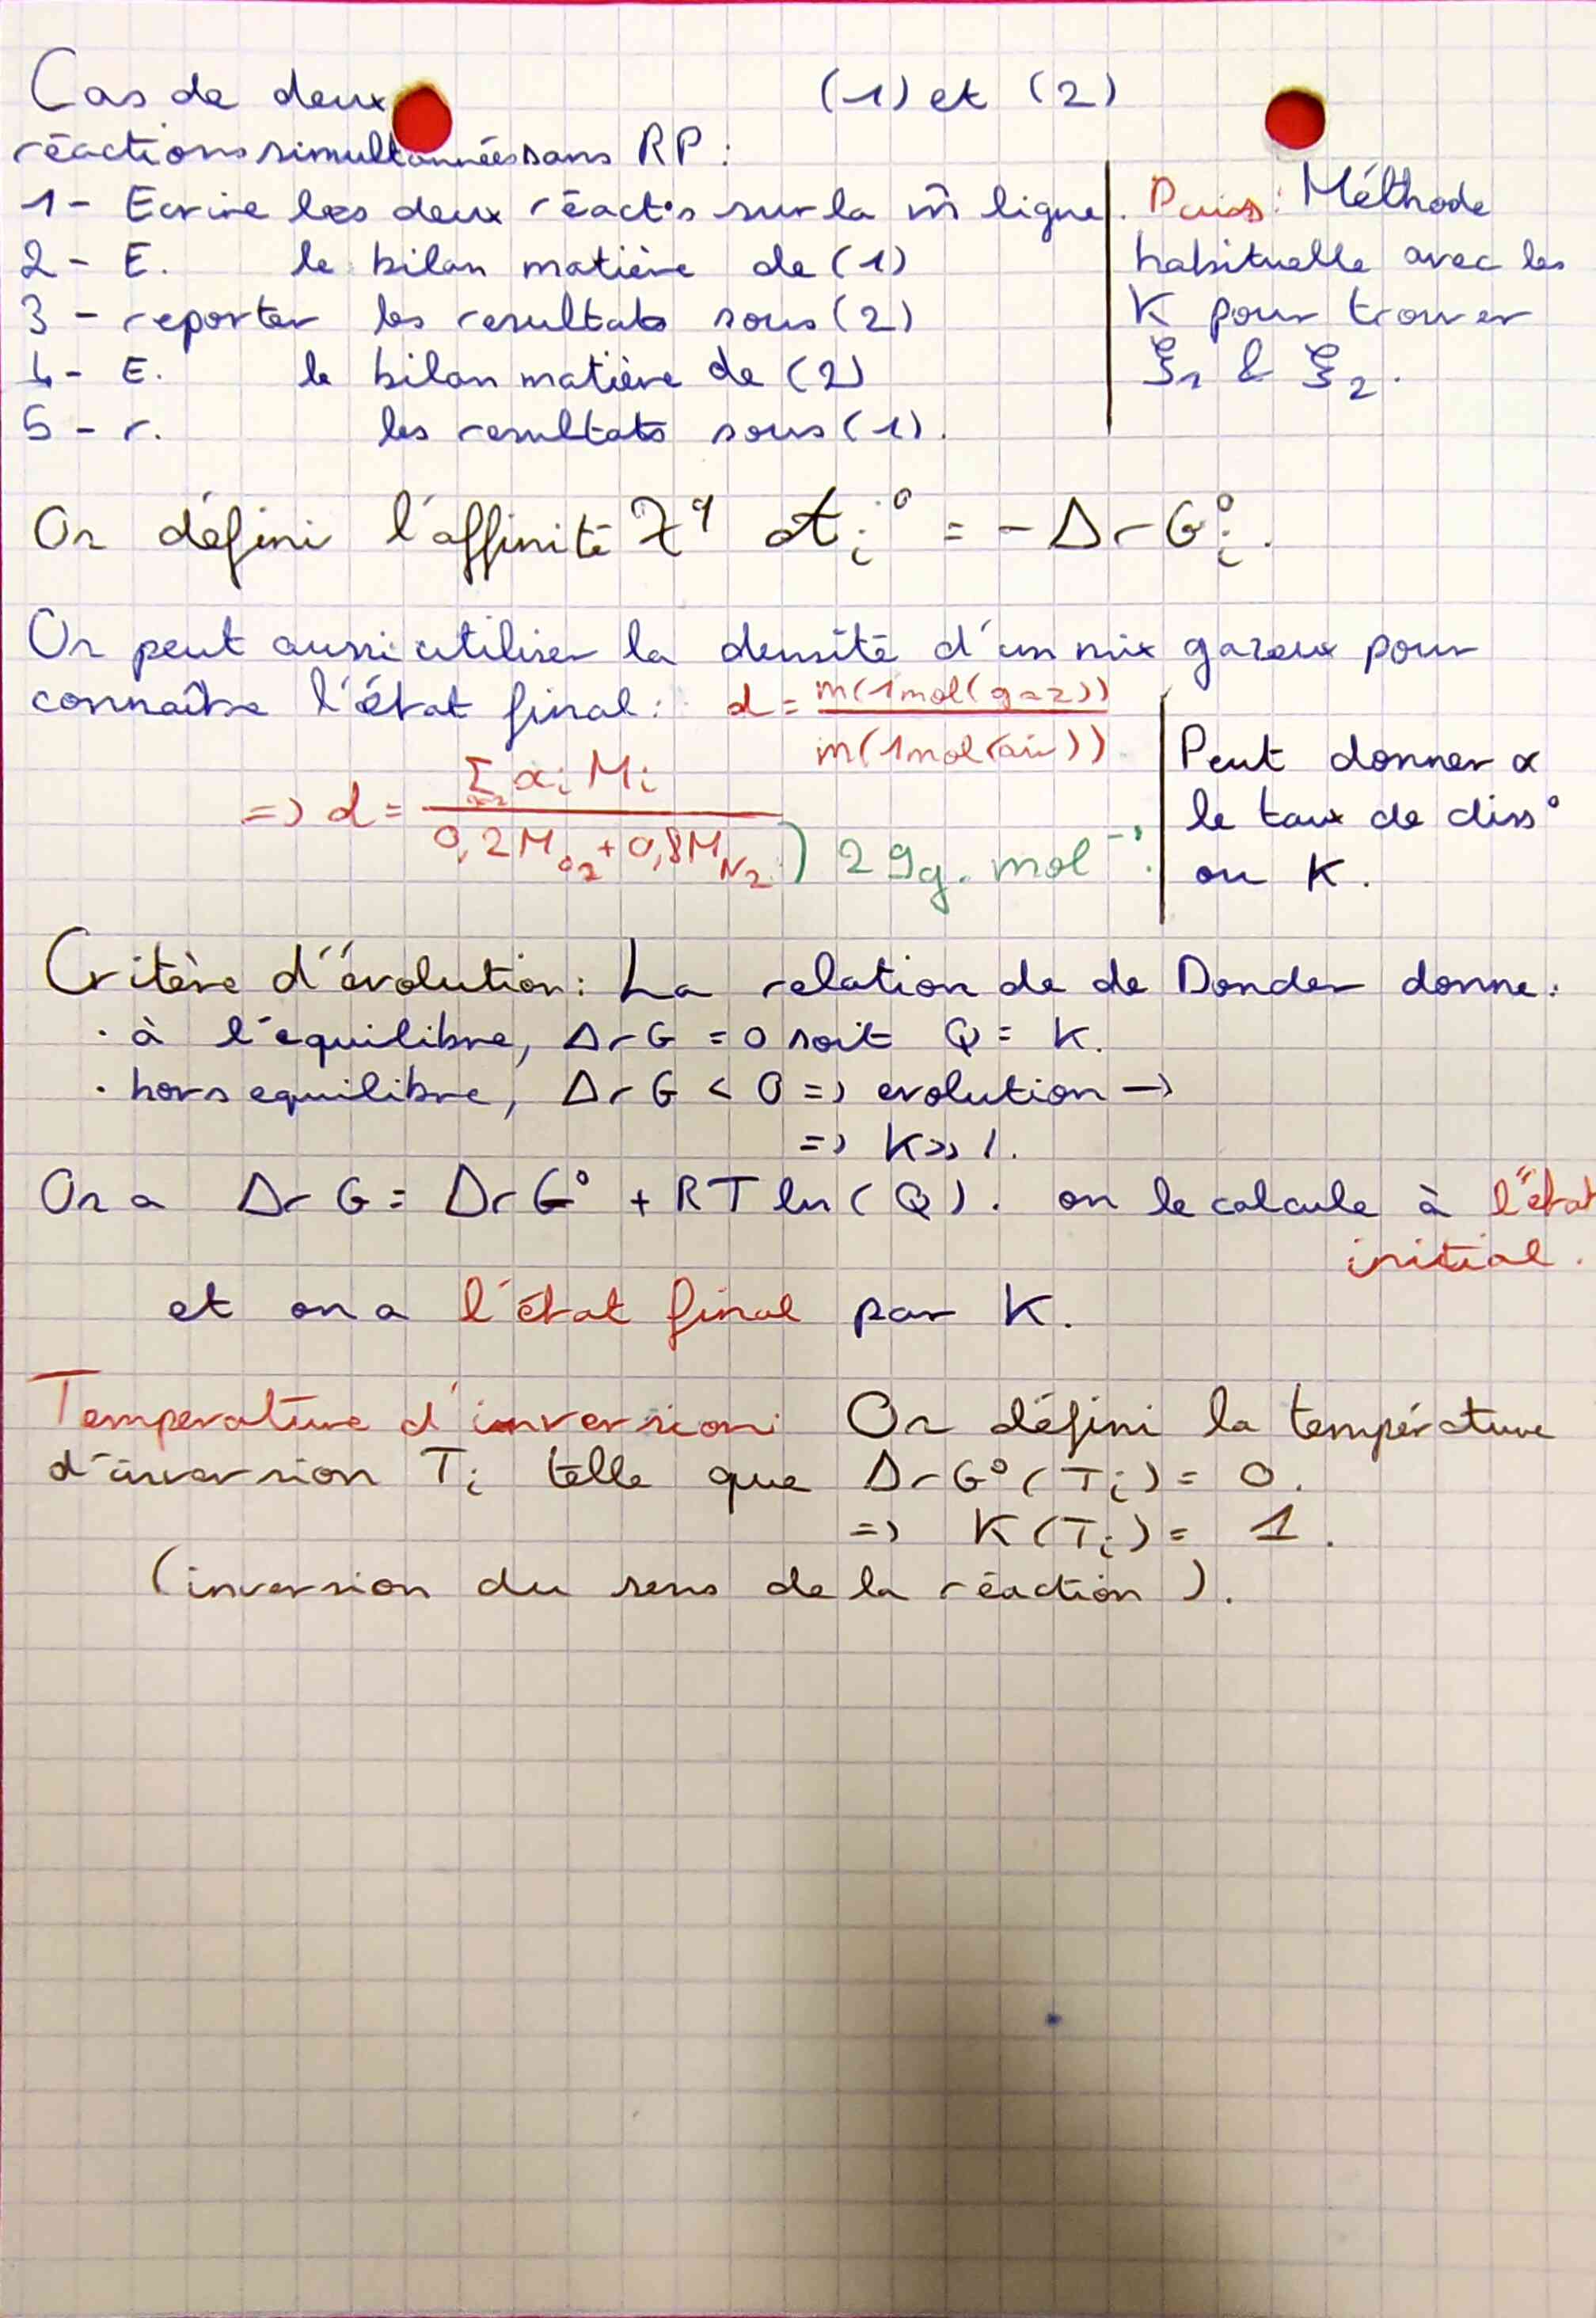 Cas de deux (1) et (2)
réactions simultannées sans RP :
1 - Ecrire les deux réact°s sur la m̂ ligne.
2 - E. le bilan matière de (1)
3 - reporter les resultats sous (2)
4 - E. le bilan matière de (2)
5 - r. les resultats sous (1).
Puis : Méthode
habituelle avec les
K pour trouver
ξ₁ & ξ₂.
On défini l'affinité χq 𝒜ᵢ° = - ΔrG°ᵢ.
On peut aussi utiliser la densité d'un mix gazeux pour
connaître l'état final : d = m(1mol(gaz)) / m(1mol(air))
=> d = Σ xᵢ Mᵢ / 0,2M_O₂ + 0,8M_N₂ ) 29g.mol⁻¹.
Peut donner α
le taux de diss°
ou K.
Critère d'évolution : La relation de de Donder donne :
· à l'équilibre, ΔrG = 0 soit Q = K.
· hors equilibre, ΔrG < 0 => evolution →
=> K >> 1.
On a ΔrG = ΔrG° + RT ln(Q). on le calcule à l'état
initial.
et on a l'état final par K.
Temperature d'inversion : On défini la température
d'inversion Tᵢ telle que ΔrG°(Tᵢ) = 0.
=> K(Tᵢ) = 1.
(inversion du sens de la réaction).